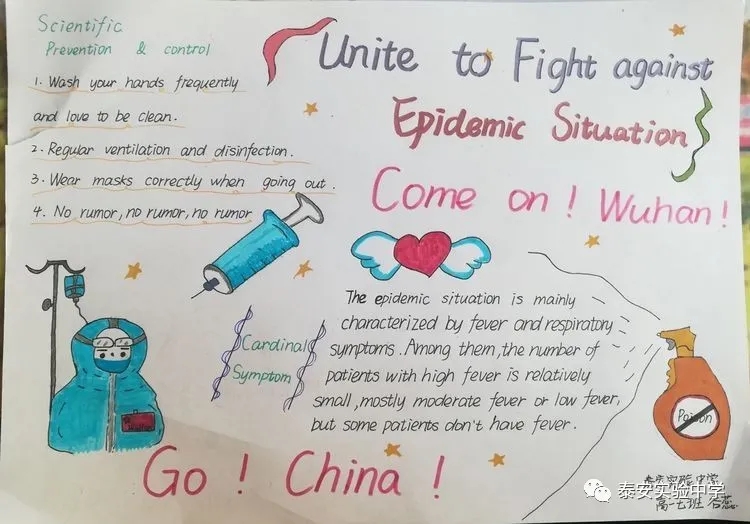 Scientific
Prevention & control
1. Wash your hands frequently
and love to be clean.
2. Regular ventilation and disinfection.
3. Wear masks correctly when going out.
4. No rumor, no rumor, no rumor
Unite to Fight against
Epidemic Situation
Come on! Wuhan!
Cardinal
Symptom
The epidemic situation is mainly
characterized by fever and respiratory
symptoms. Among them, the number of
patients with high fever is relatively
small, mostly moderate fever or low fever,
but some patients don't have fever.
Poison
Go! China!
泰安实验中学
高一七班 谷蕊
泰安实验中学